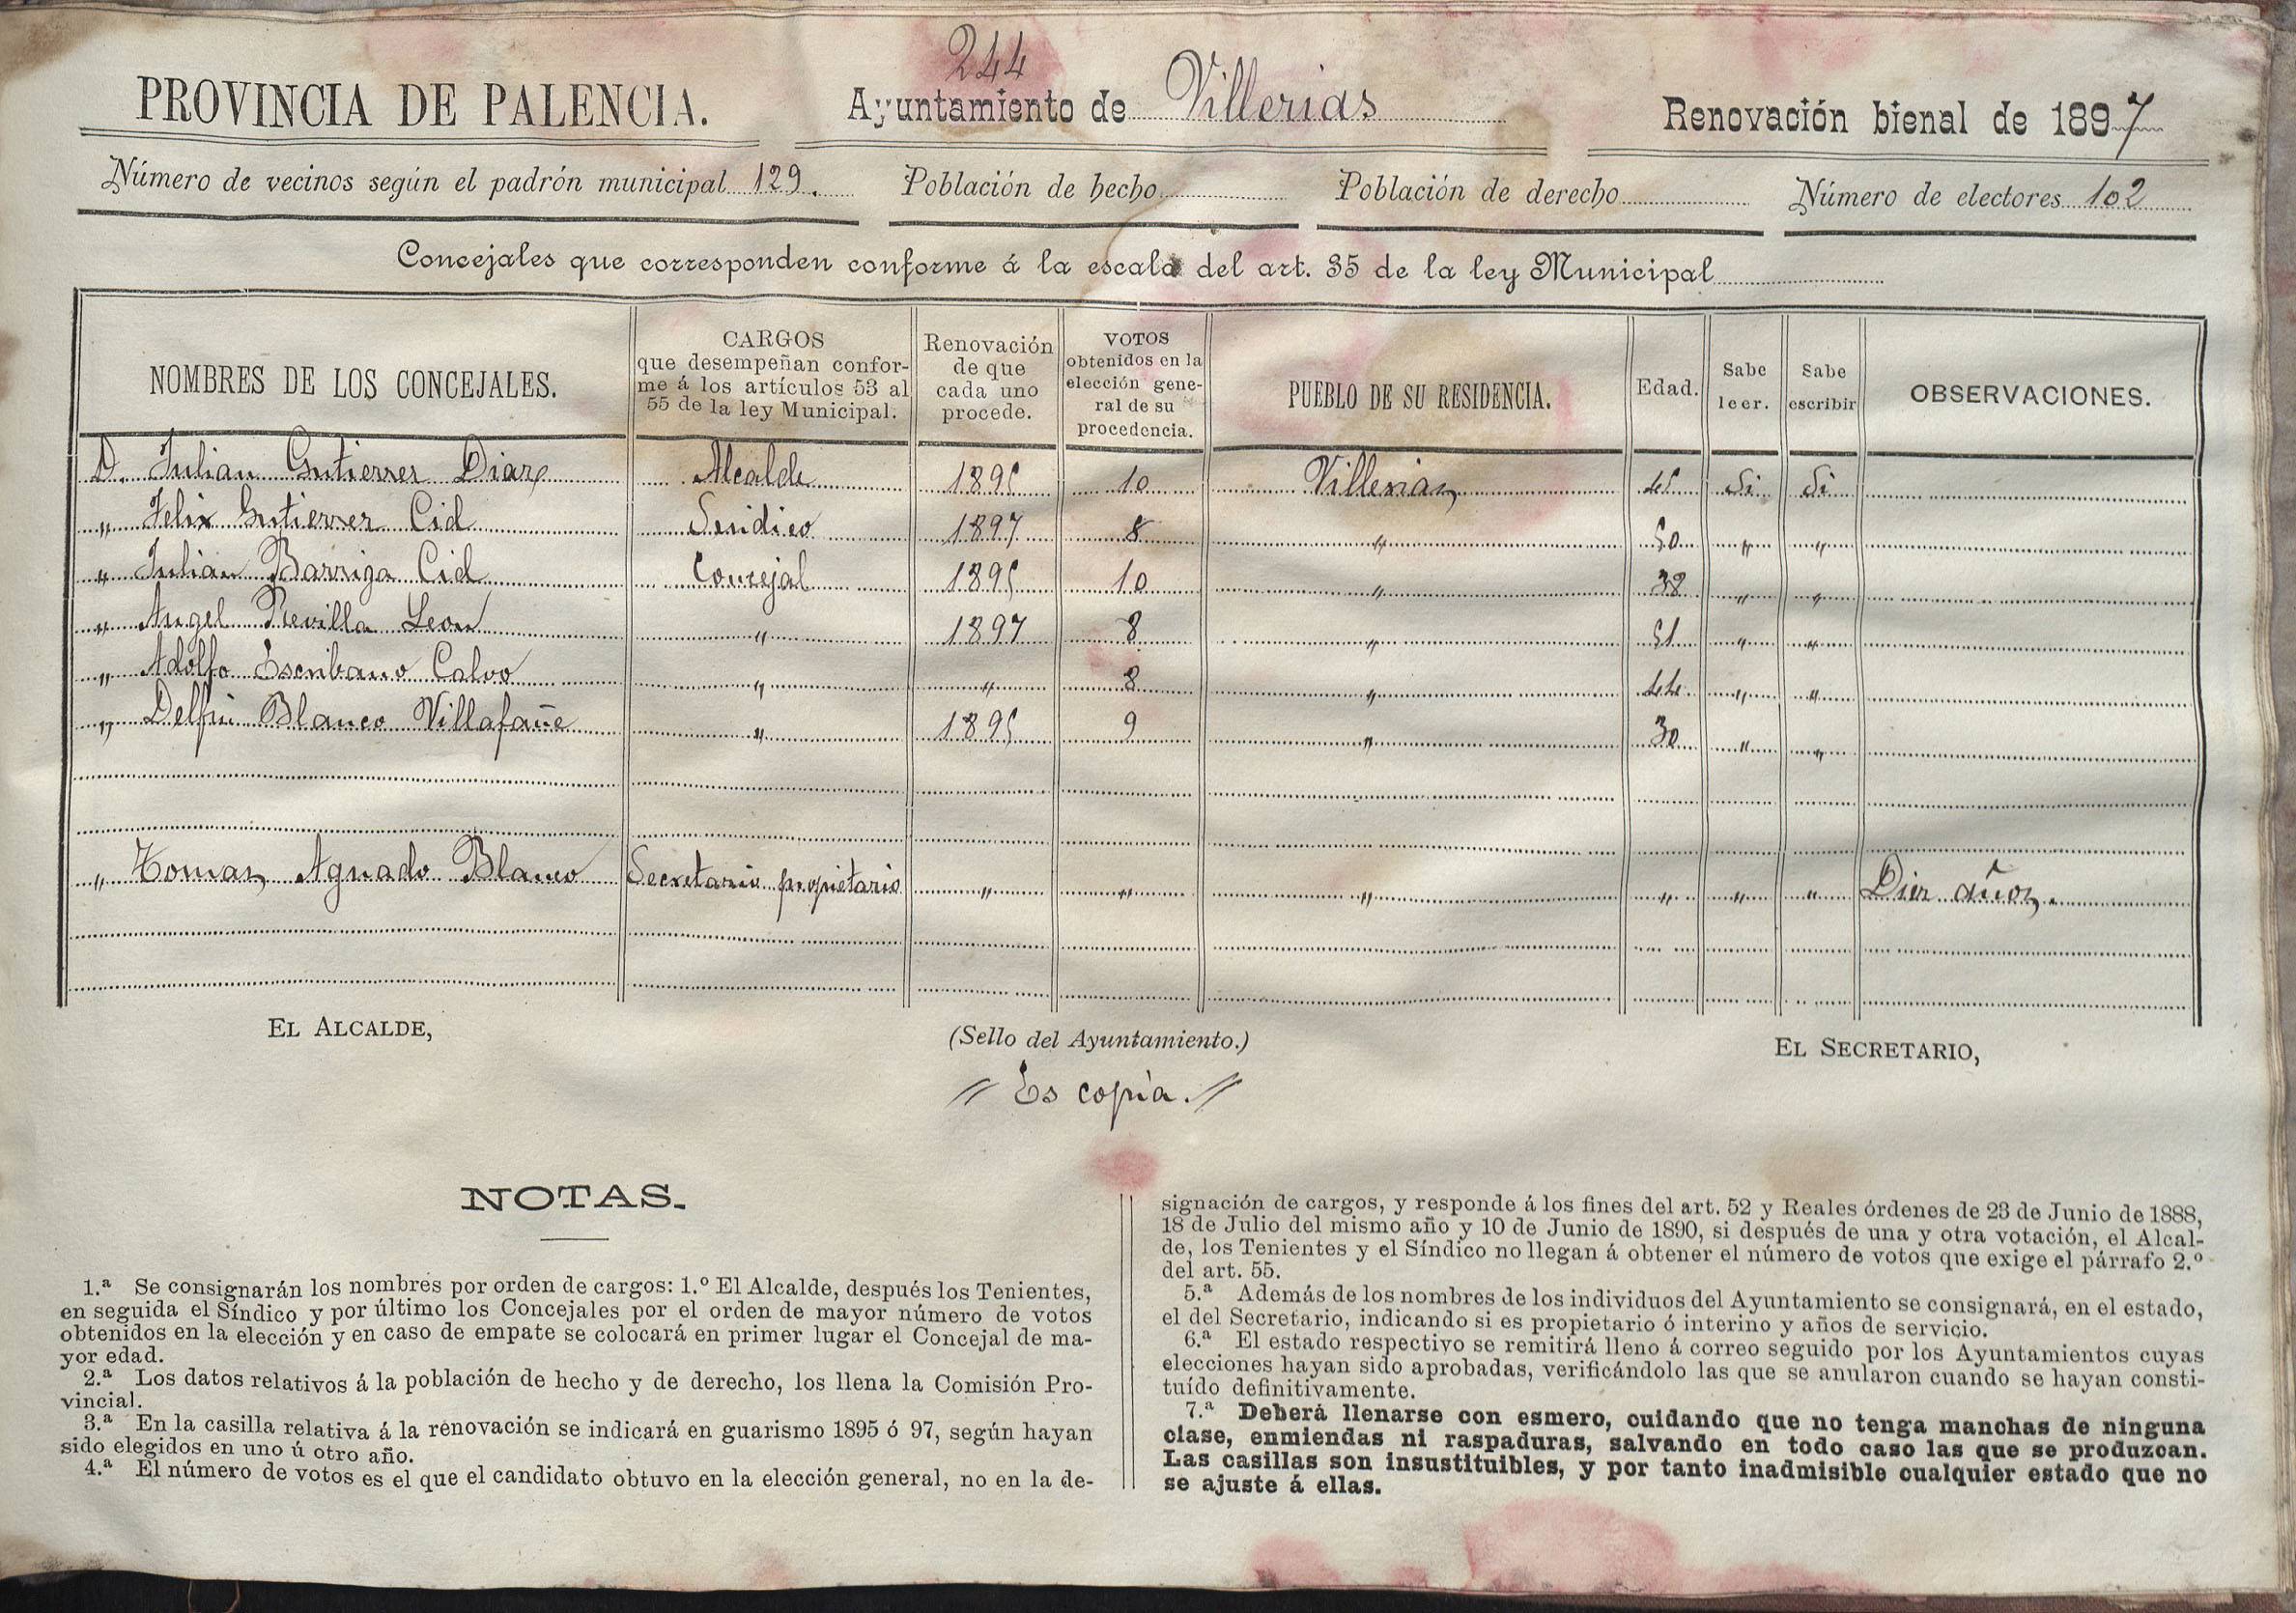 244
PROVINCIA DE PALENCIA. Ayuntamiento de Villerias Renovación bienal de 1897
Número de vecinos según el padrón municipal 129. Población de hecho Población de derecho Número de electores 102
Concejales que corresponden conforme á la escala del art. 35 de la ley Municipal
NOMBRES DE LOS CONCEJALES.
CARGOS
que desempeñan confor-
me á los artículos 53 al
55 de la ley Municipal.
Renovación
de que
cada uno
procede.
VOTOS
obtenidos en la
elección gene-
ral de su
procedencia.
PUEBLO DE SU RESIDENCIA.
Edad.
Sabe
leer.
Sabe
escribir
OBSERVACIONES.
D. Julian Gutierrez Diaz Alcalde 1895 10 Villerias 45 Si Si
" Felix Gutierrez Cid Sindico 1897 8 " 50 " "
" Julian Barriga Cid Concejal 1895 10 " 38 " "
" Angel Revilla Leon " 1897 8 " 51 " "
" Adolfo Escribano Calvo " " 8 " 44 " "
" Delfin Blanco Villafañe " 1895 9 " 30 " "
" Tomas Aguado Blanco Secretario propietario " " " " " " Diez años.
EL ALCALDE,
(Sello del Ayuntamiento.)
EL SECRETARIO,
// Es copia. //
NOTAS.
1.ª Se consignarán los nombres por orden de cargos: 1.º El Alcalde, después los Tenientes,
en seguida el Síndico y por último los Concejales por el orden de mayor número de votos
obtenidos en la elección y en caso de empate se colocará en primer lugar el Concejal de ma-
yor edad.
2.ª Los datos relativos á la población de hecho y de derecho, los llena la Comisión Pro-
vincial.
3.ª En la casilla relativa á la renovación se indicará en guarismo 1895 ó 97, según hayan
sido elegidos en uno ú otro año.
4.ª El número de votos es el que el candidato obtuvo en la elección general, no en la de-
signación de cargos, y responde á los fines del art. 52 y Reales órdenes de 23 de Junio de 1888,
18 de Julio del mismo año y 10 de Junio de 1890, si después de una y otra votación, el Alcal-
de, los Tenientes y el Síndico no llegan á obtener el número de votos que exige el párrafo 2.º
del art. 55.
5.ª Además de los nombres de los individuos del Ayuntamiento se consignará, en el estado,
el del Secretario, indicando si es propietario ó interino y años de servicio.
6.ª El estado respectivo se remitirá lleno á correo seguido por los Ayuntamientos cuyas
elecciones hayan sido aprobadas, verificándolo las que se anularon cuando se hayan consti-
tuído definitivamente.
7.ª Deberá llenarse con esmero, cuidando que no tenga manchas de ninguna
clase, enmiendas ni raspaduras, salvando en todo caso las que se produzcan.
Las casillas son insustituibles, y por tanto inadmisible cualquier estado que no
se ajuste á ellas.